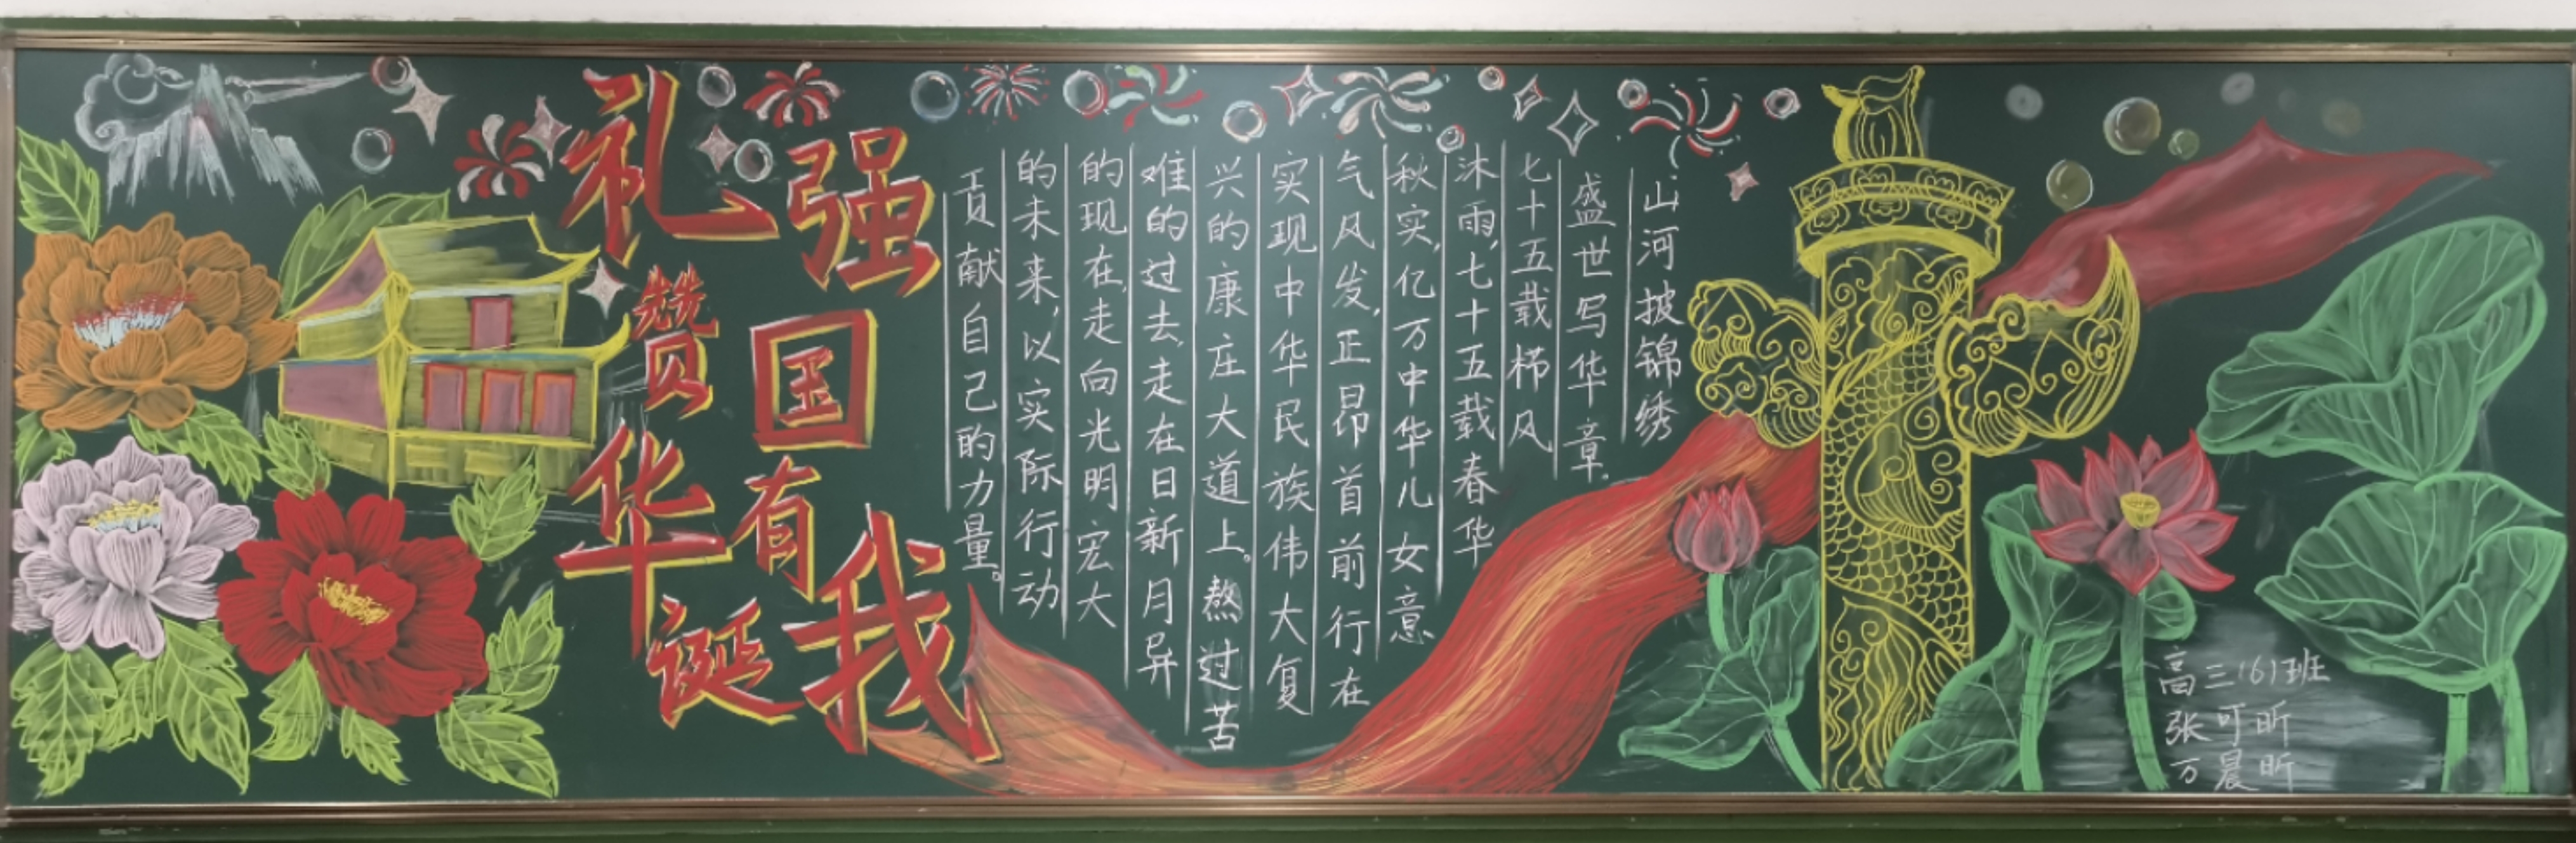 礼赞华诞
强国有我
山河披锦绣
盛世写华章.
七十五载栉风
沐雨,七十五载春华
秋实,亿万中华儿女意
气风发,正昂首前行在
实现中华民族伟大复
兴的康庄大道上。熬过苦
难的过去,走在日新月异
的现在,走向光明宏大
的未来,以实际行动
贡献自己的力量。
高三(6)班
张可昕
万晨昕